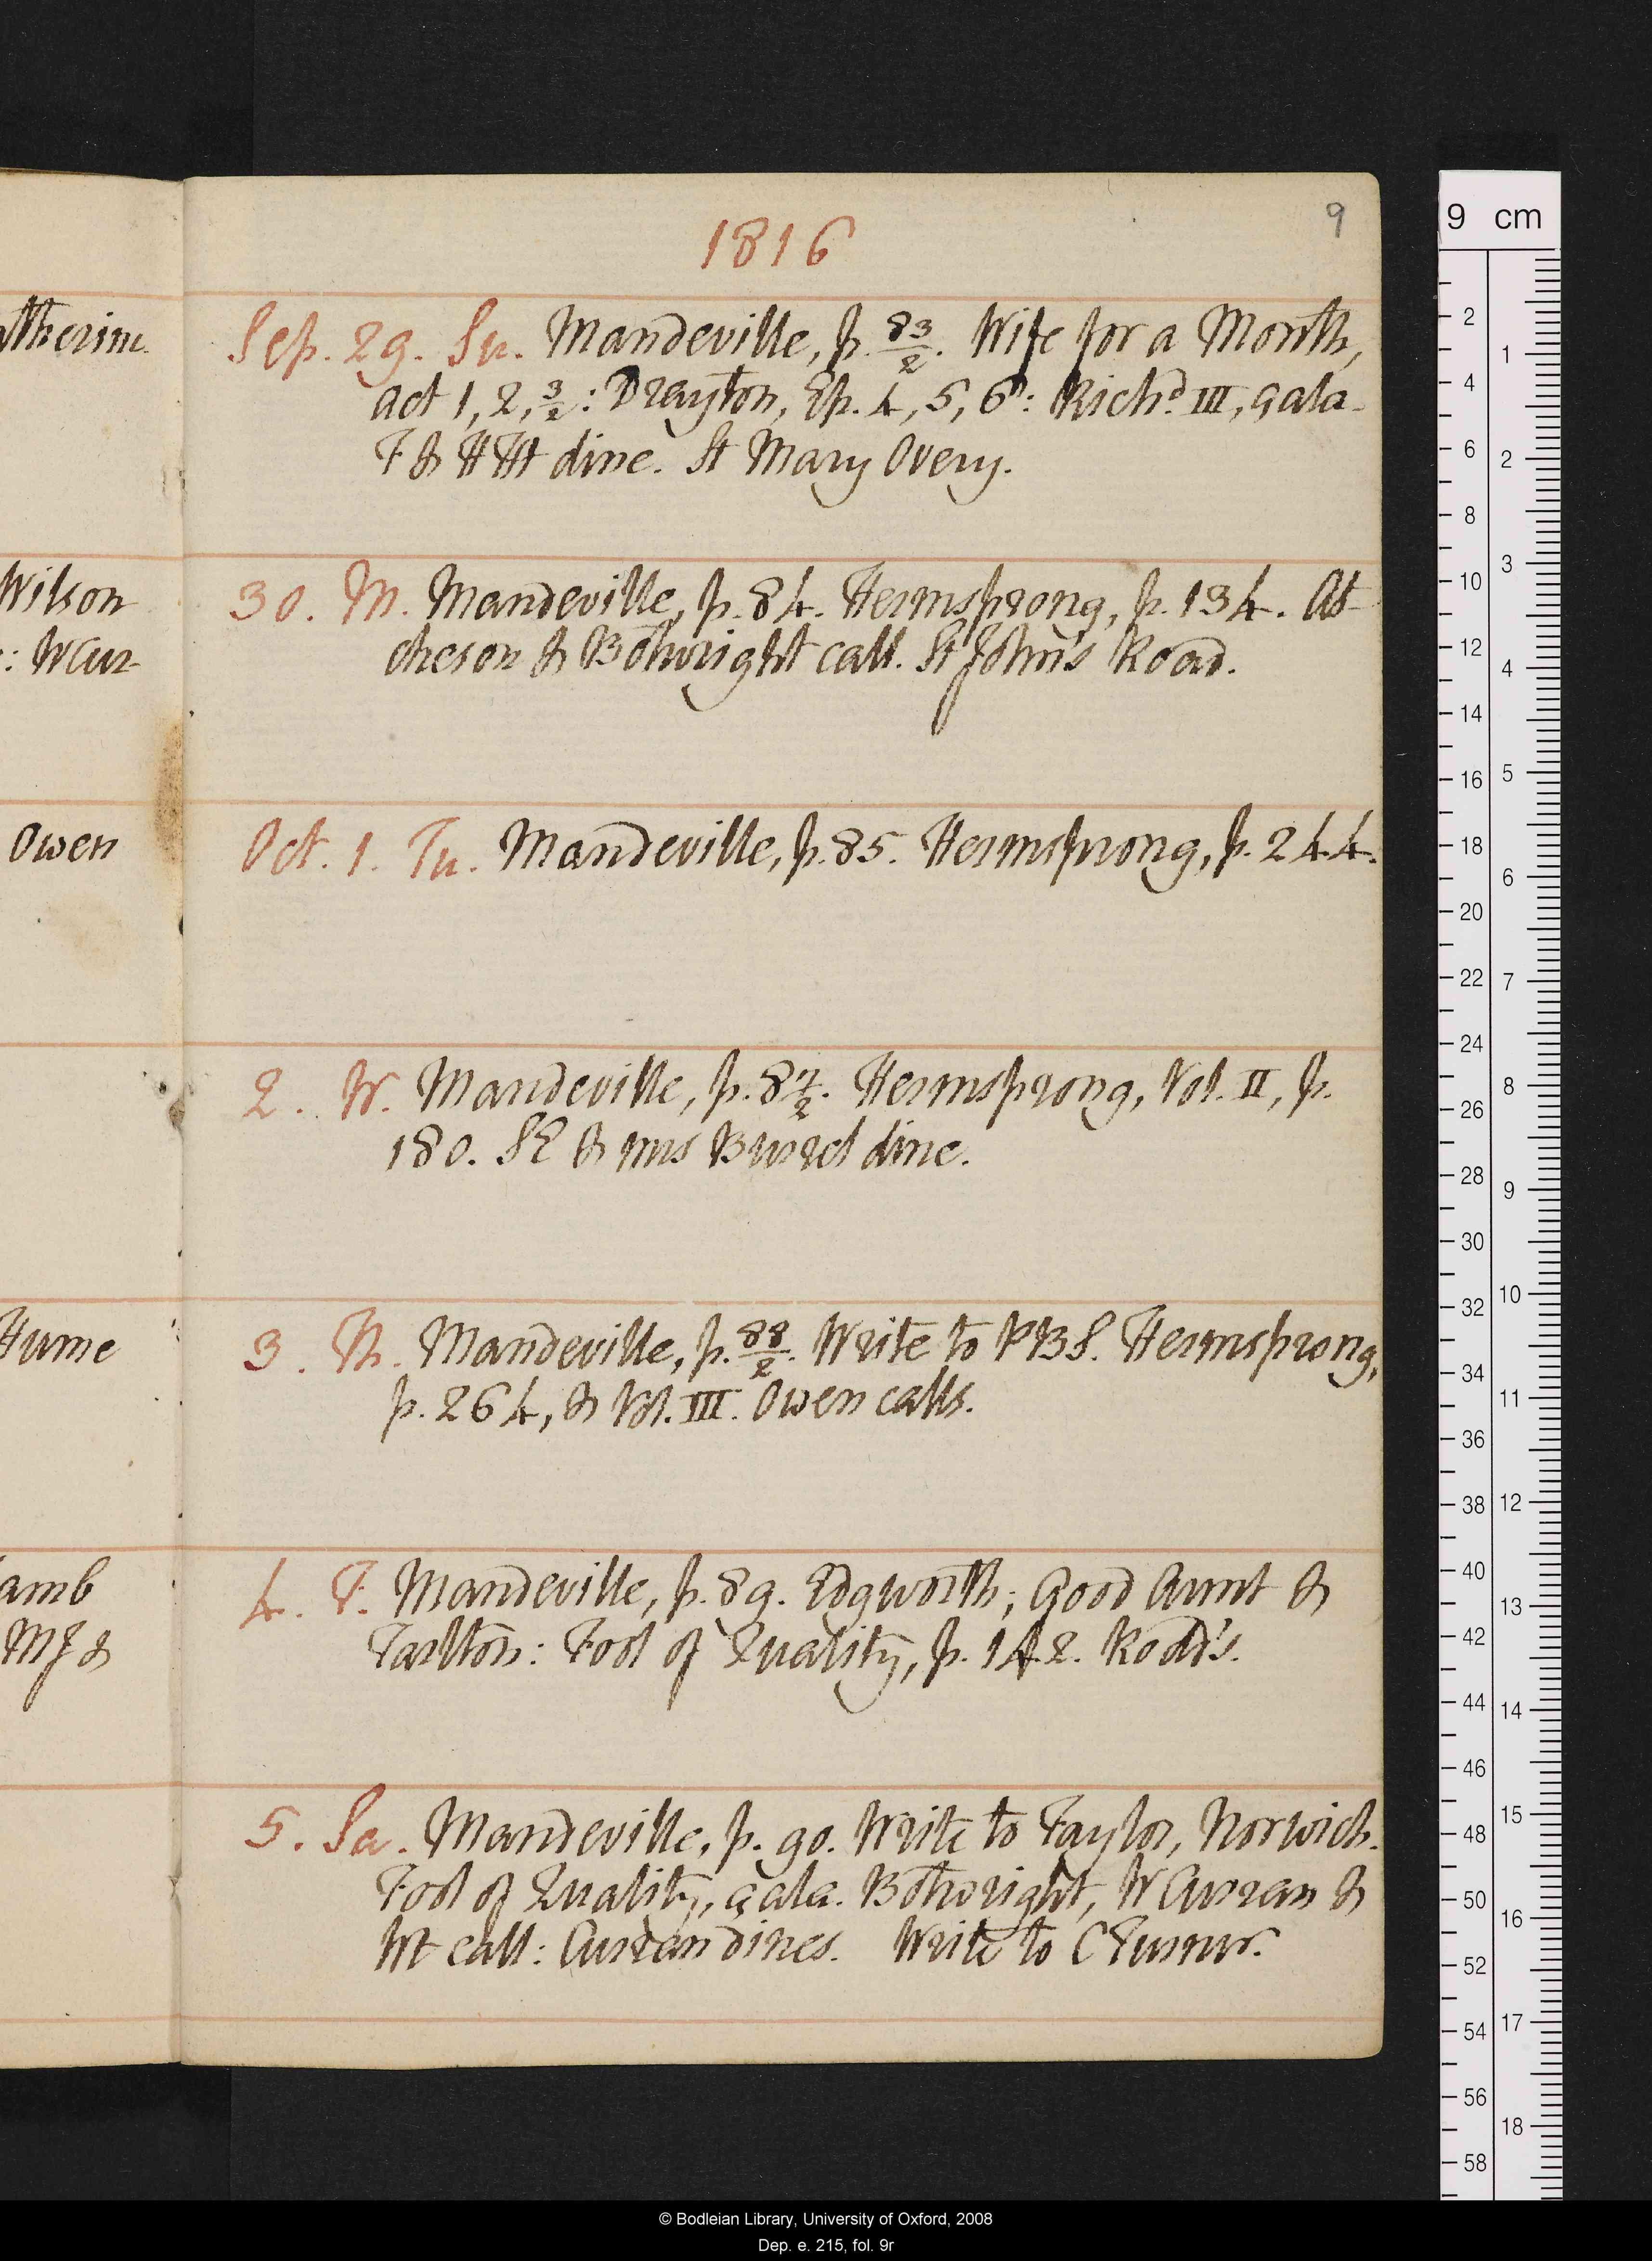 1816
9
Sep. 29. Su. Mandeville, p. 83/2. Wife for a Month,
act 1, 2, 3/2: Drayton, Ep. 4, 5, 6: Richd III, çala.
T & H Ht dine. St Mary Overy.
30. M. Mandeville, p. 84. Hermsprong, p. 134. At-
cheson & Bothwright call. St John's Road.
Oct. 1. Tu. Mandeville, p. 85. Hermsprong, p. 244.
2. W. Mandeville, p. 87/2. Hermsprong, Vol. II, p.
180. SE & mrs Burrel dine.
3. Th. Mandeville, p. 88/2. Write to PBS. Hermsprong,
p. 264, & Vol. III. Owen calls.
4. F. Mandeville, p. 89. Edgworth; Good Aunt &
Tarlton: Fool of Quality, p. 142. Rodd's.
5. Sa. Mandeville, p. 90. Write to Taylor, Norwich.
Fool of Quality, çala. Bothwright, W Curran &
Ht call: Curran dines. Write to C
therine
Wilson
: WCur-
Owen
Hume
amb
MJ &
9 cm
2
4
6
8
10
12
14
16
18
20
22
24
26
28
30
32
34
36
38
40
42
44
46
48
50
52
54
56
58
1
2
3
4
5
6
7
8
9
10
11
12
13
14
15
16
17
18
© Bodleian Library, University of Oxford, 2008
Dep. e. 215, fol. 9r